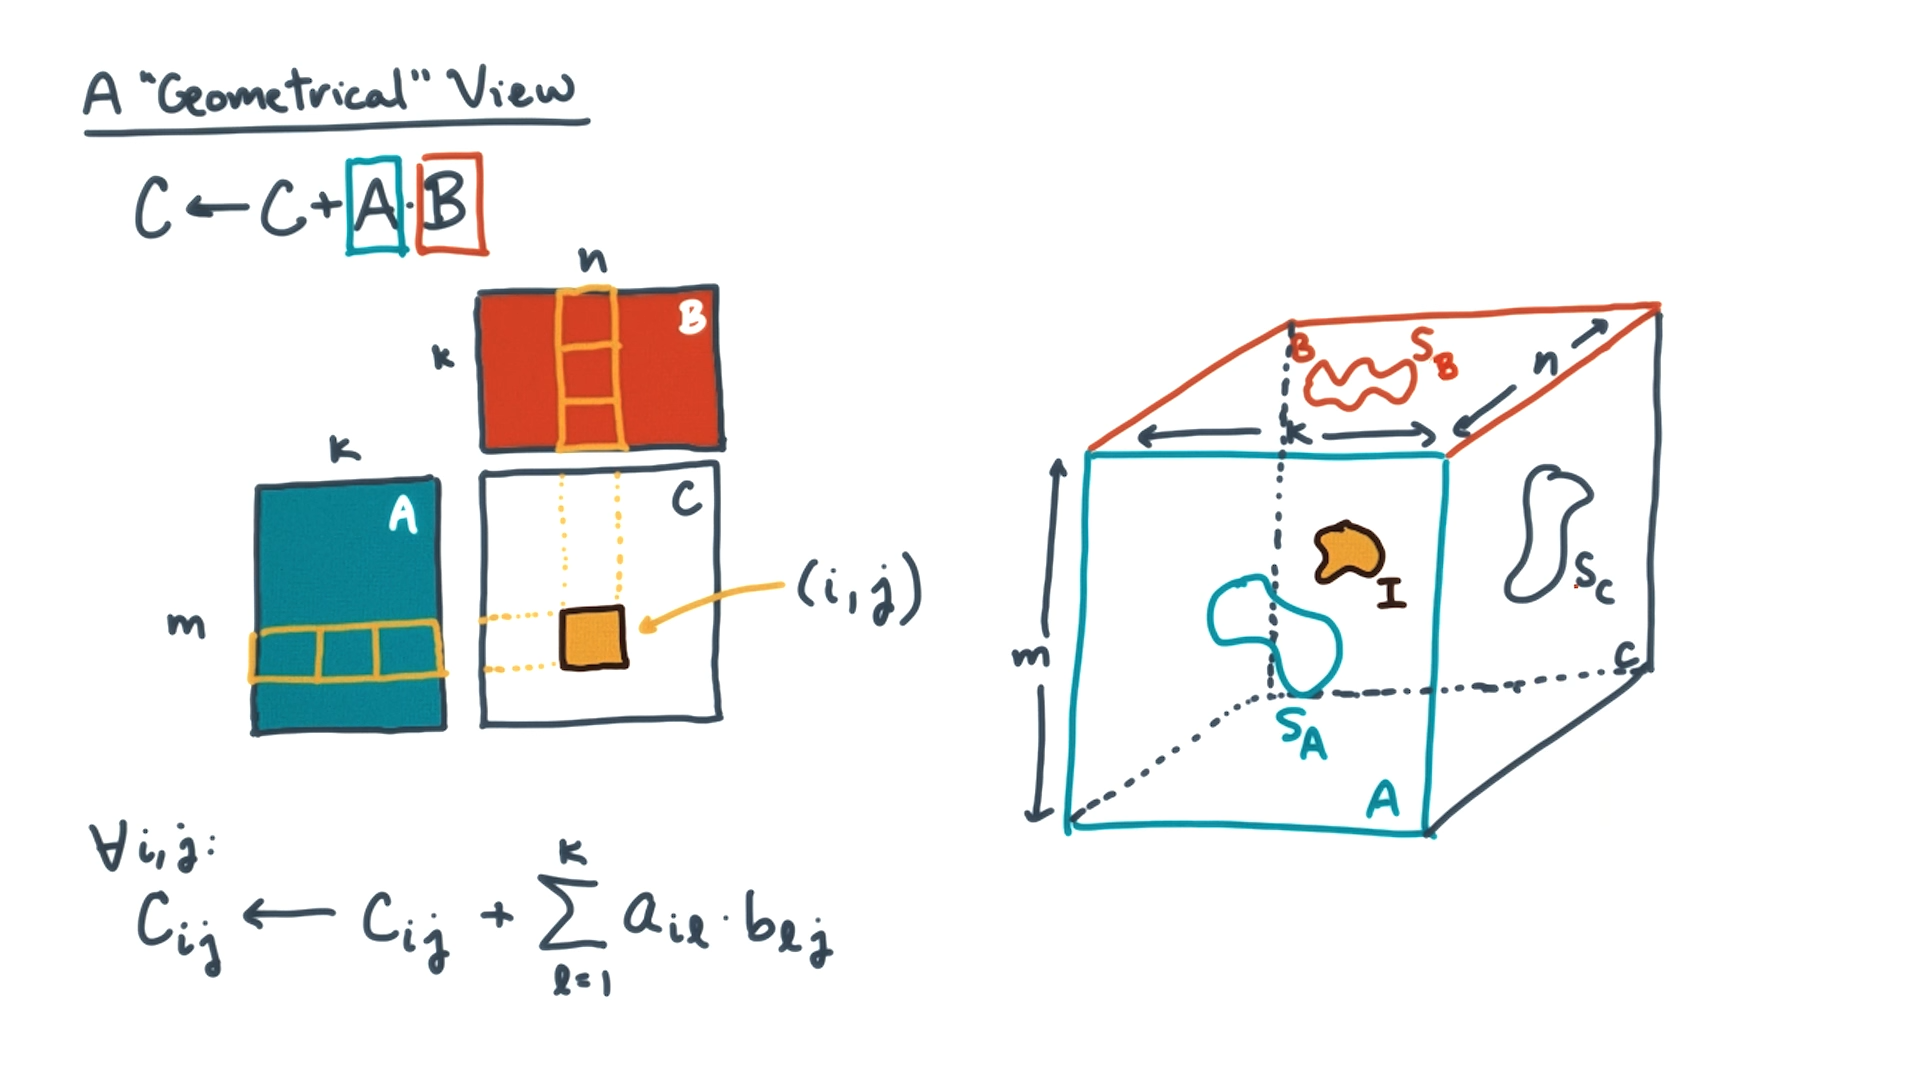 A "Geometrical" View
C ← C + A · B
n
B
k
k
A
m
C
(i, j)
∀i, j:
C_ij ← C_ij + ∑_{l=1}^{k} a_il · b_lj
B
S_B
n
k
m
I
S_C
S_A
C
A